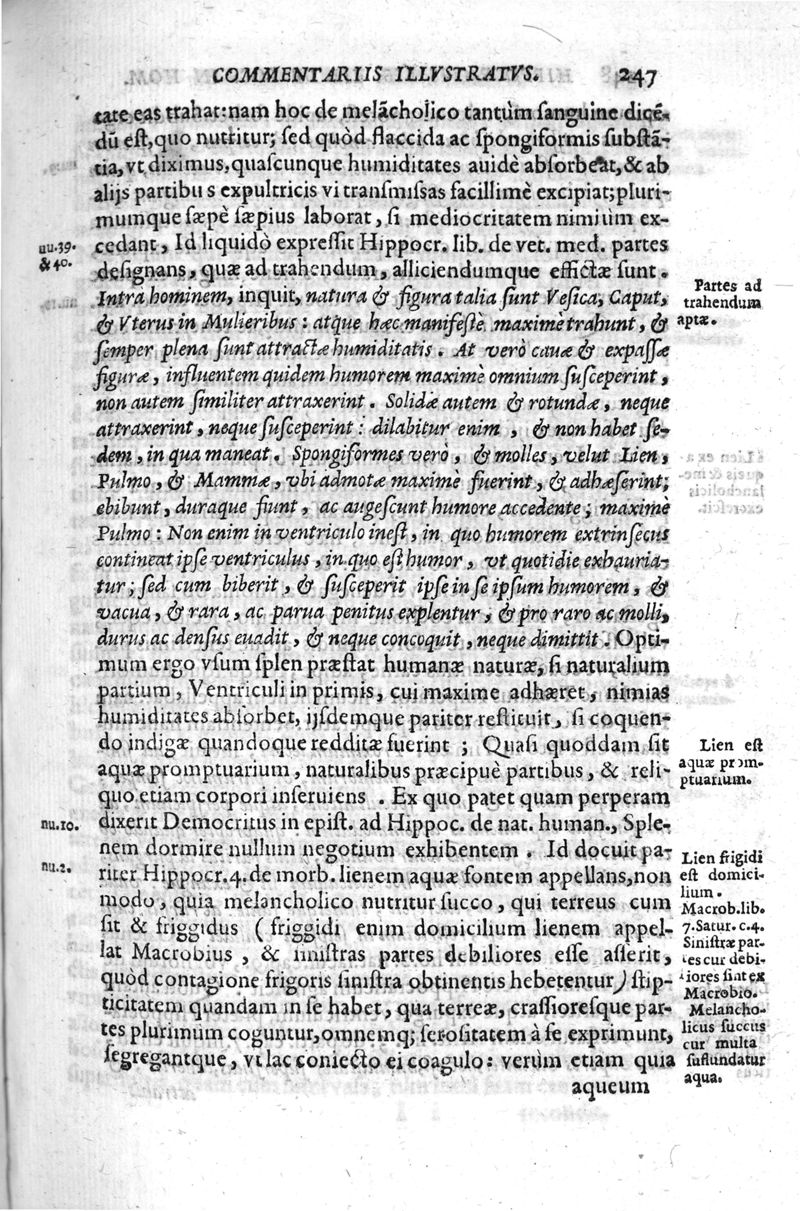 COMMENTARIIS ILLVSTRATVS. 247
tate eas trahat: nam hoc de melãcholico tantùm ſanguine dicẽ-
dũ eſt, quo nutritur; ſed quòd flaccida ac ſpongiformis ſubſtã-
tia, vt diximus, quaſcunque humiditates auidè abſorbeat, & ab
alijs partibu s expultricis vi tranſmiſsas facillimè excipiat; pluri-
mumque ſæpè ſæpius laborat, ſi mediocritatem nimiùm ex-
cedant, Id liquidò expreſſit Hippocr. lib. de vet. med. partes
deſignans, quæ ad trahendum, alliciendumque effictæ ſunt.
Intra hominem, inquit, natura & figura talia ſunt Veſica, Caput,
& Vterus in Mulieribus: atque hæc manifeſtè maximè trahunt, &
ſemper plena ſunt attractæ humiditatis. At verò cauæ & expaſſæ
figuræ, influentem quidem humorem maximè omnium ſuſceperint,
non autem ſimiliter attraxerint. Solidæ autem & rotundæ, neque
attraxerint, neque ſuſceperint: dilabitur enim, & non habet ſe-
dem, in qua maneat. Spongiformes verò, & molles, velut Lien,
Pulmo, & Mammæ, vbi admotæ maximè fuerint, & adhæſerint;
ebibunt, duraque fiunt, ac augeſcunt humore accedente; maximè
Pulmo: Non enim in ventriculo ineſt, in quo humorem extrinſecus
contineat ipſe ventriculus, in quo eſt humor, vt quotidie exhauria-
tur; ſed cum biberit, & ſuſceperit ipſe in ſe ipſum humorem, &
vacua, & rara, ac parua penitus explentur, & pro raro ac molli,
durus ac denſus euadit, & neque concoquit, neque dimittit. Opti-
mum ergo vſum ſplen præſtat humanæ naturæ, ſi naturalium
partium, Ventriculi in primis, cui maxime adhæret, nimias
humiditates abſorbet, ijſdemque pariter reſtituit, ſi coquen-
do indigæ quandoque redditæ fuerint; Quaſi quoddam ſit
aquæ promptuarium, naturalibus præcipuè partibus, & reli-
quo etiam corpori inſeruiens. Ex quo patet quam perperam
dixerit Democritus in epiſt. ad Hippoc. de nat. human., Sple-
nem dormire nullum negotium exhibentem. Id docuit pa-
riter Hippocr. 4. de morb. lienem aquæ fontem appellans, non
modo, quia melancholico nutritur ſucco, qui terreus cum
ſit & friggidus (friggidi enim domicilium lienem appel-
lat Macrobius, & ſiniſtras partes debiliores eſſe aſſerit,
quòd contagione frigoris ſiniſtra obtinentis hebetentur) ſtip-
ticitatem quandam in ſe habet, qua terreæ, craſſioreſque par-
tes plurimum coguntur, omnemq; ſeroſitatem à ſe exprimunt,
ſegregantque, vt lac coniecto ei coagulo: verùm etiam quia
aqueum
nu. 39.
& 40.
nu. 10.
nu. 2.
Partes ad
trahendum
aptæ.
Lien eſt
aquæ prom-
ptuarium.
Lien frigidi
eſt domici-
lium.
Macrob. lib.
7. Satur. c. 4.
Siniſtræ par-
tes cur debi-
liores ſint ex
Macrobio.
Melancho-
licus ſuccus
cur multa
ſuffundatur
aqua.